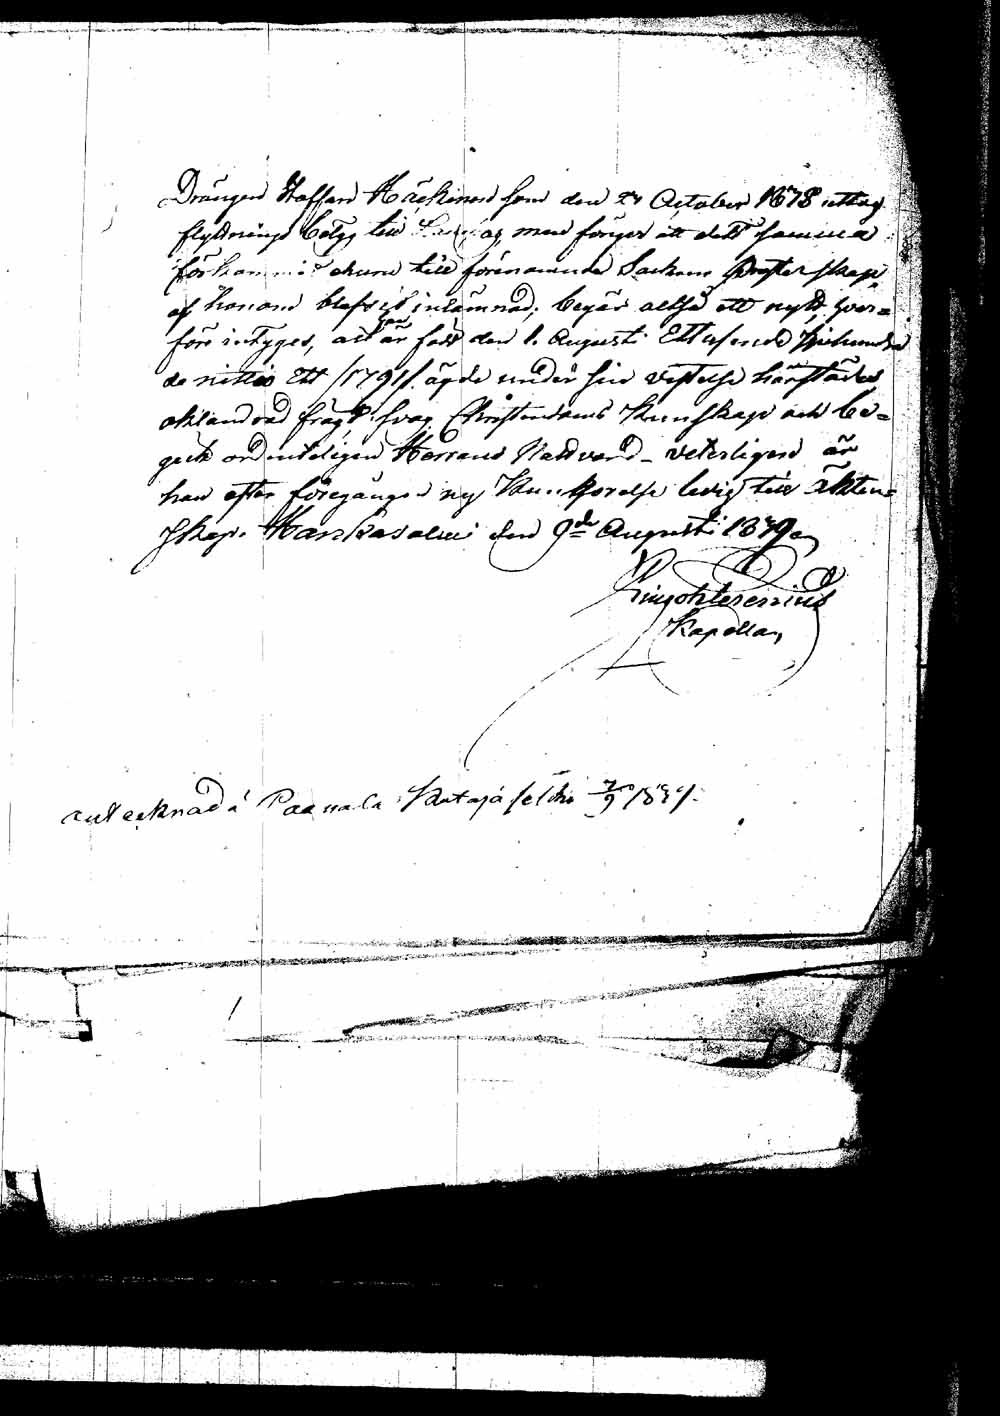 Drängen Staffan Häckinen som den 24 October 1878 uttog
flyttnings betyg till men föreger att dett samma
förkommit ehuru till förenämnda Sockens Prosterskap
af honom blefvit inlämnad, begär altså ett nytt, hvar=
före intyges, att han är född den 1. Augusti Ett tusende Sjuhundra
de nittio Ett /1791/. ägde under sin vistelse härstädes
oklandrad frägd. svag Christendoms Kunskap och be=
gick ordenteligen Herrans Nattvard – veterligen är
han efter föregången ny Kunförelse ledig till äkten=
skap. Hankasalmi den 9de Augusti 1839
Kapellan
antecknad å Paanala Katajaselkä 7/9 1839.